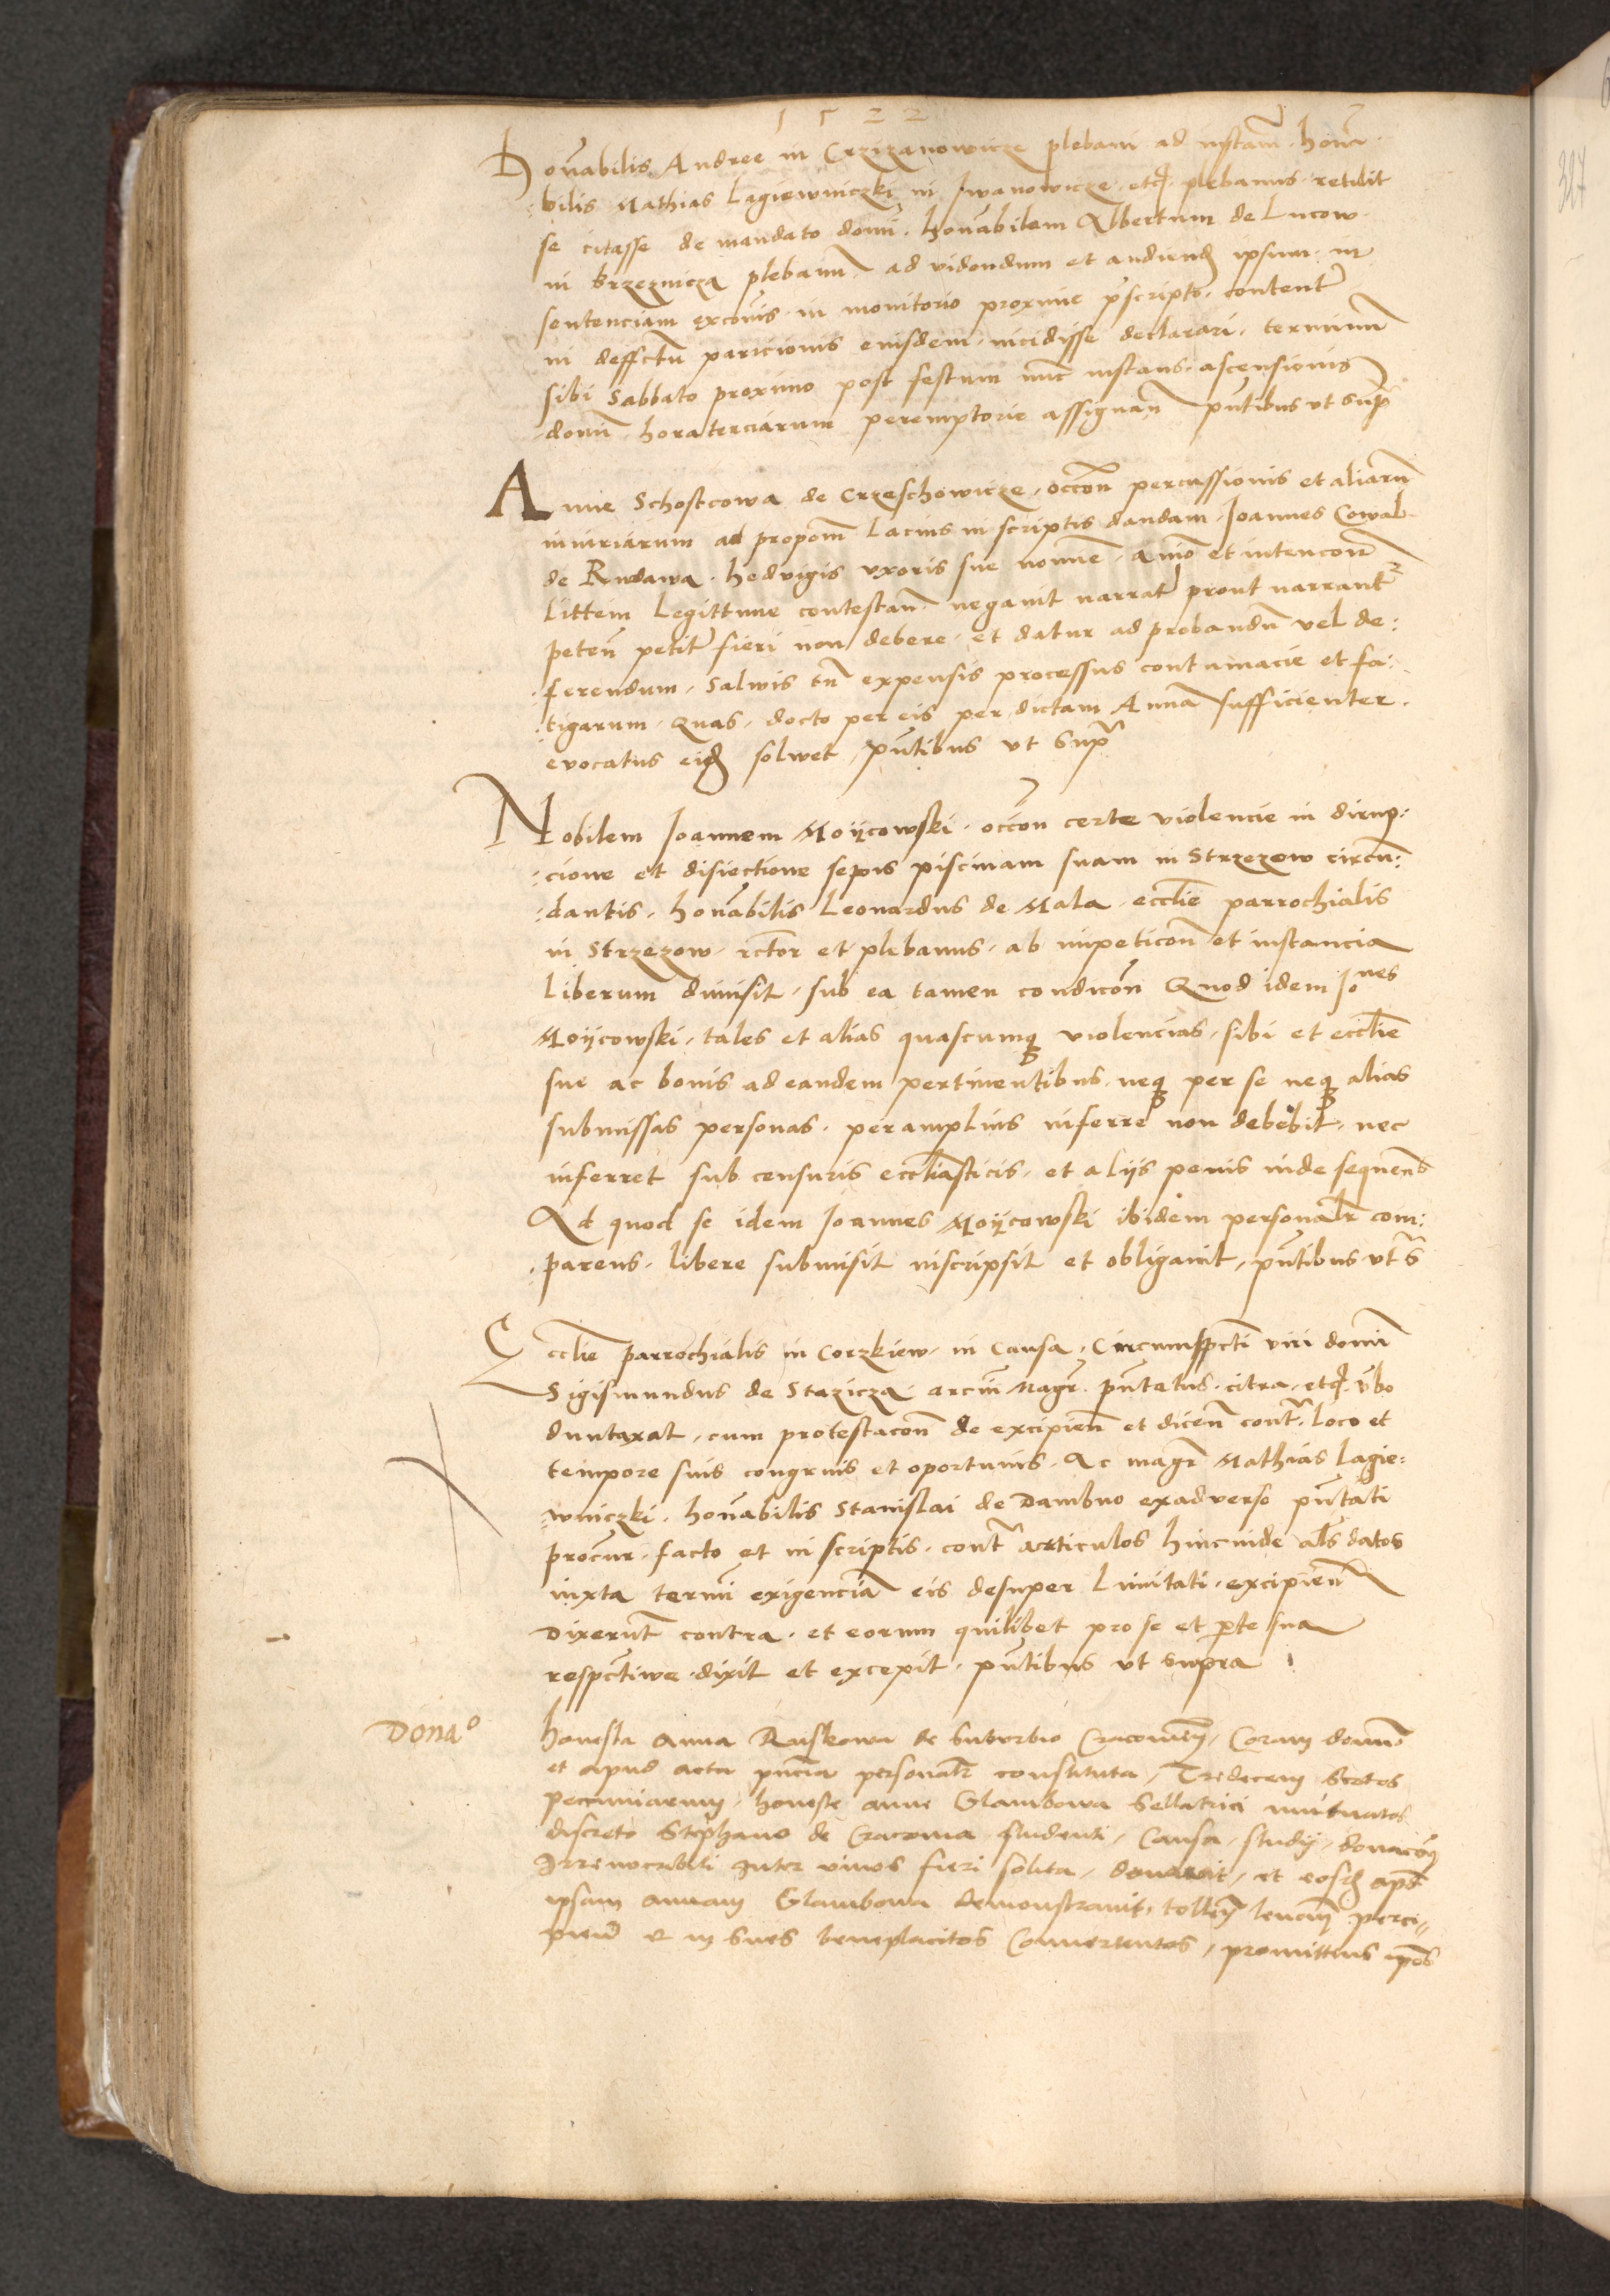 1522
Honabilis Andree in Crzizanowicze plebani ad instam. hona
bilis Mathias Lagiewniczki in Iwanowicze etc. plebanus. retulit
se citasse de mandato domi. honabilem Albertum de Lucow.
in brzeznicza plebanum. ad videndum et audiend ipsum. in
sentenciam excois. in monitorio proxime prescripto. contentam
in deffectum paricionis eiusdem. incidisse declarari. terminum
sibi Sabbato proximo post festum nunc instans. ascensionis
domi. hora terciarum peremptorie assignan pntibus ut supra
Anne Schostcowa de Crzeschowicze. occon percussionis et aliarum
iniuriarum ad propom Lacius in scriptis dandam. Ioannes Cowal
de Rudawa. hedvigis uxoris sue nomine. animo et intencon
littem legittime contestan. negavit narrata prout narrantur
peten petita fieri non debere. et datur ad probandum vel de:
ferendum. Salvis tn expensis processus contumacie et fa:
:tigarum. Quas. docto per eis per dictam Annam sufficienter.
evocatus eid solvet pntibus ut supra
Nobilem Ioannem Moÿcowski. occon certe violencie in dirup:
:cione et disiectione sepis piscinam suam in Strzezow circum:
:dantis. honabilis Leonardus de Mala. ecclie parrochialis
in Strzezow. rector et plebanus. ab impeticon et instancia
Liberum dimisit. sub ea tamen condicon Quod idem Ioannes
Moÿcowski. tales et alias quascumque violencias. sibi et ecclie
sue ac bonis ad eandem pertinentibus. neque per se neque alias
submissas personas. peramplius inferre non debebit. nec
inferret sub censuris ecclesiasticis. et alijs penis inde sequens
Ad quod se idem Ioannes Moÿcowski ibidem personaliter com:
:parens. libere submisit inscripsit et obligavit. pntibus ut s
Ecclie parrochialis in Corzkiew. in Causa. Circumspecti viri domi
Sigismundus de Stazicza. arcium Magr. pntatus. citra. etc. verbo
duntaxat. cum protestacon de excipien et dicen contra. loco et
tempore suis congruis et oportunis. Ac magr Mathias Lagie:
:wniczki. honabilis Stanislai de Dambno exadverso pntati
procur. facto et in scriptis. contra articulos hincinde als datos
iuxta termi exigenciam eis desuper limitati. excipien
dixerunt contra. et eorum quilibet pro se et parte sua
respective. dixit et excepit. pntibus ut supra
Dona°
honesta Anna Ruskowa de suburbio Cracovien. Coram domino
et apud acta pncia personaliter constituta. Tredecem Scotos
pecuniarum. honeste anne Glambowa Sellatrici mutuatos
discreto Stephano de Cracovia studenti. Causa studij. donacon
Irrevocabili Inter vivos fieri solita. donavit. et eosd apud
ipsam annam Glambowa demonstravit. tollen levan perci"
pien et in suos beneplacitos Convertentos. promittens ipsos